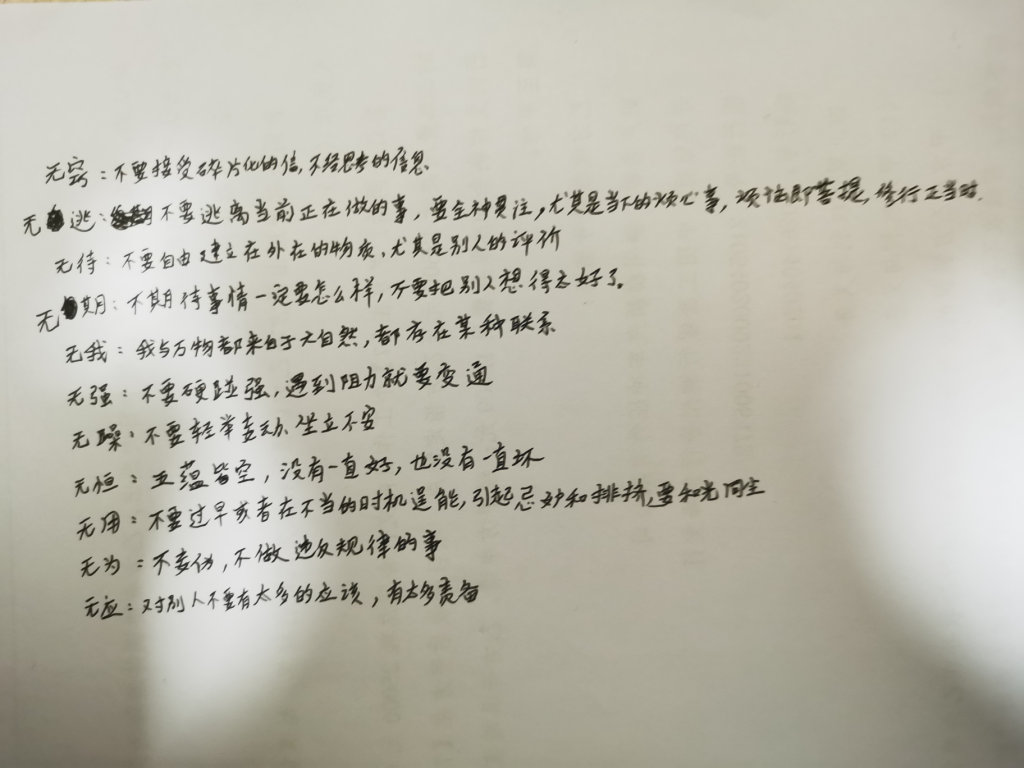 无窍：不要接受碎片化的信，不经思考的信息
无逃：不要逃离当前正在做的事，要全神贯注，尤其是当下的烦心事，烦恼即菩提，修行正当时.
无待：不要自由建立在外在的物质，尤其是别人的评价
无期：不期待事情一定要怎么样，不要把别人想得太好了。
无我：我与万物都来自于大自然，都存在某种联系
无强：不要硬碰强，遇到阻力就要变通
无躁：不要轻举妄动、坐立不安
无恒：五蕴皆空，没有一直好，也没有一直坏
无用：不要过早或者在不当的时机逞能，引起忌妒和排挤，要和光同尘
无为：不要伪，不做违反规律的事
无应：对别人不要有太多的应该，有太多责备